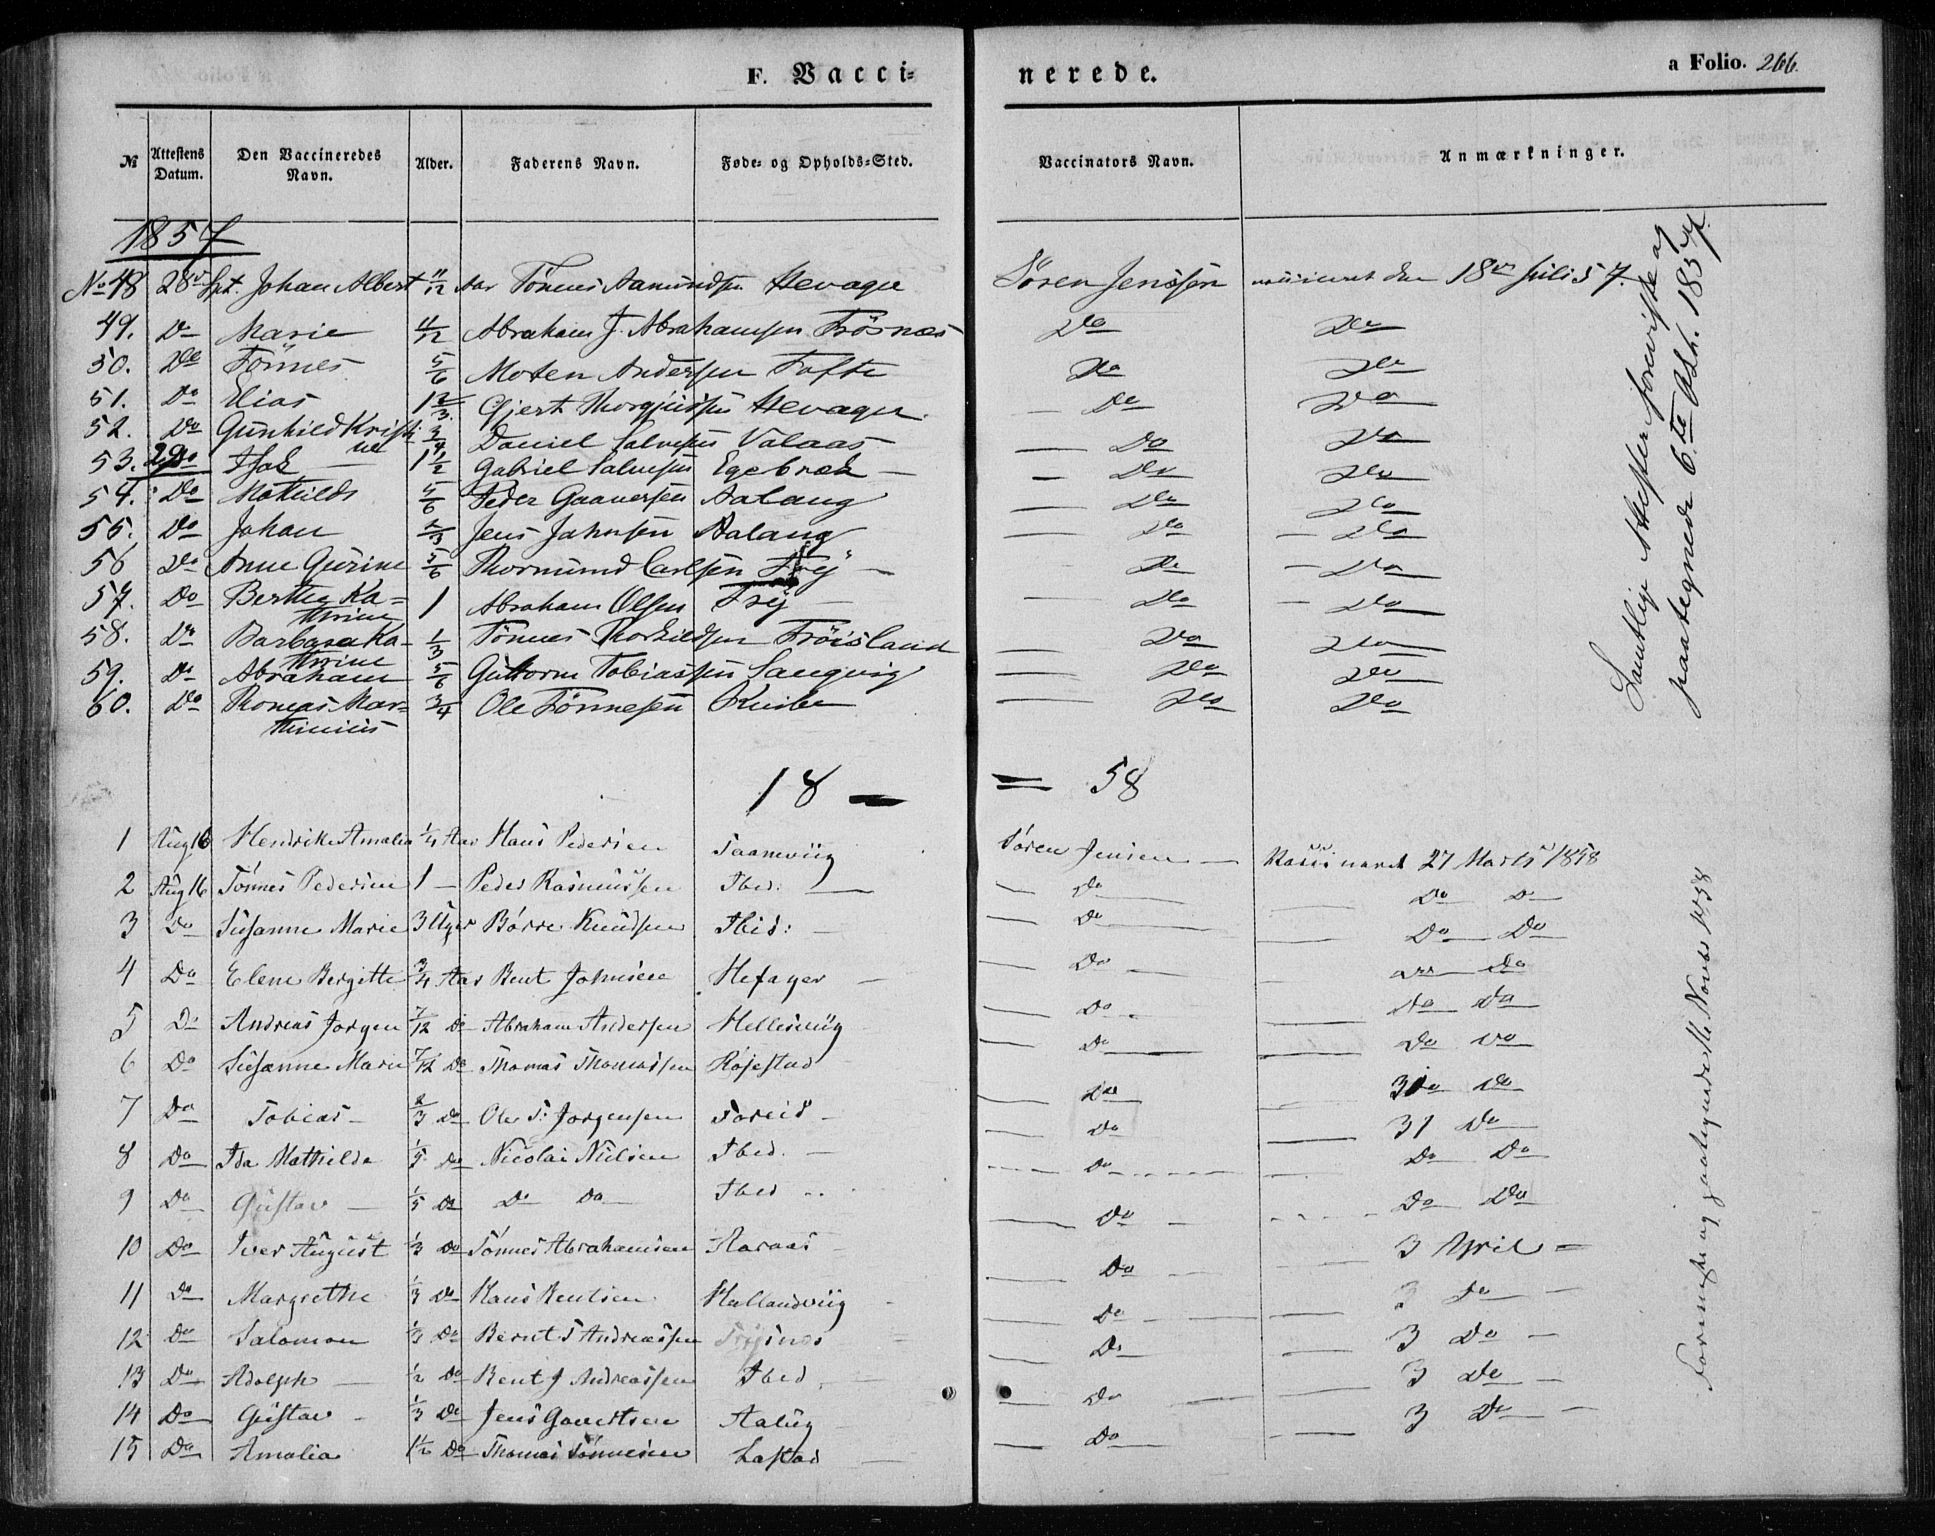 F. Vacci=
nerede.
a Folio. 266.
№ Attestens Datum. Den Vaccineredes Navn. Alder. Faderens Navn. Føde- og Opholds-Sted. Vaccinators Navn. Anmærkninger.
1857
No 48 28de Spt. Johan Albert 11/12 Aar Tönnes Aamundsen Hevager Sören Jenssen vaccineret den 18de Juli 57.
49. Do Marie 11/12 Abraham J. Abrahamsen Frösnæs Do Do
50. Do Tönnes 5/6 Moten Andersen Tofte Do Do
51. Do Elias 1 2/3 Gjert Hevager. Do Do
52. Do Gunhild Kristi
ne 3/4 Daniel Salvesen Valaas Do Do
53. 29 Do Isak 1 1/2 Gabriel Salvesen Egebræk Do Do
54. Do Mathilde 5/6 Peder Gaaversen Aalang Do Do
55. Do Johan 2/3 Jens Jahnsen Aalang Do Do
56 Do Anne Gurine 5/6 Thormund Carlsen Frej Do Do
57. Do Berthe Ka=
thrine 1 Abraham Olsen Frej Do Do
58. Do Barbara Ka-
thrine 1/3 Tönnes Thorkildsen Fröisland Do Do
59. Do Abraham 5/6 Guttorm Tobiassen Langvig Do Do
60. Do Thomas Mar=
thinius 3/4 Ole Tönnesen Do Do
Samtlige Attester foreviste og
paategnede 6te Octb. 1857.
18 = 58
1 Aug 16 Hendrikke Amalia 1/4 Aar Hans Pedersen Taanevig Sören Jensen Vaccineret 27 Marts 1858
2 Aug 16 Tönnes Pedersen 1 Peder Rasmussen Ibid: Do Do Do
3 Do Susanne Marie 3 Uger Börre Knudsen Ibid: Do Do Do
4 Do Elene Bergitte 3/4 Aar Bent Johnsen Hefager Do Do Do
5 Do Andreas Jorgen 7/12 Do Abraham Andersen Hellesviig Do Do Do
6 Do Susanne Marie 7/12 Do Thomas Thomassen Röjestad Do Do Do
7 Do Tobias 2/3 Do Ole T: Jorgensen Toreid Do 31 Do Do
8 Do Ida Mathilde 1/5 Do Nicolai Nielsen Ibid. Do 31 Do
9 Do Gustav 1/5 Do Do Do Ibid Do Do Do
10 Do Iver August 1/3 Do Tönnes Abrahamsen Aaraas Do 3 April
11 Do Margrethe 1/3 Do Hans Bentsen Hallandviig Do 3 Do
12 Do Salomon 1/3 Do Bernt T Andreassen Do 3 Do
13 Do Adolph 1/2 Do Bent J Andreassen Ibid Do 3 Do
14 Do Gustav 1/3 Do Jens Gaaertsen Aalug Do 3 Do
15 Do Amalia 1 1/2 Do Thomas Tönnesen Lastad Do
Foreviste og paategnede Novbr 1858